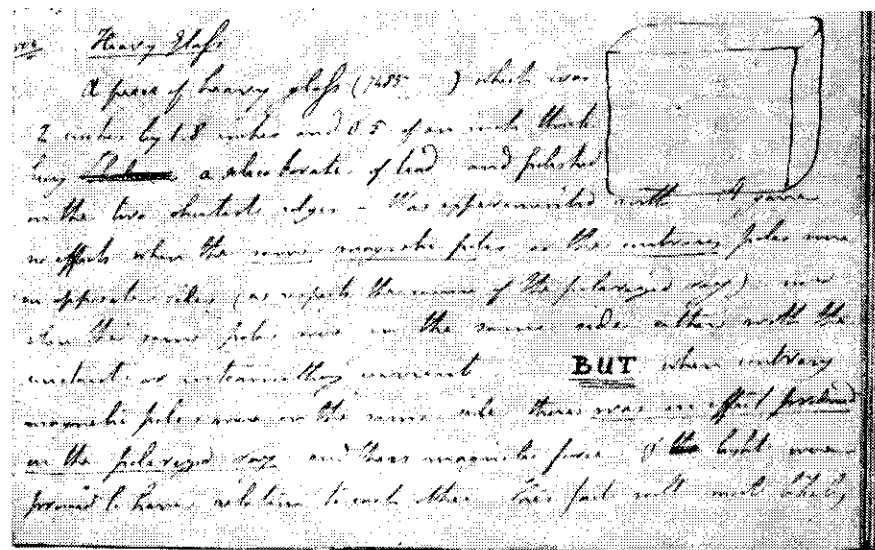 Heavy Glass
A piece of heavy glass (7485 ) which was
2 inches by 1.8 inches and 0.5 of an inch thick
being a silico borate of lead and polished
on the two shortest edges - was experimented with It gave
no effects when the same magnetic poles or the contrary poles were
on opposite sides (as respects the course of the polarized ray) nor
when the same poles were on the same side either with the
constant or intermitting current BUT when contrary
magnetic poles were on the same side there was an effect produced
on the polarized ray and thus magnetic force and light were
proved to have relation to each other This fact will most likely